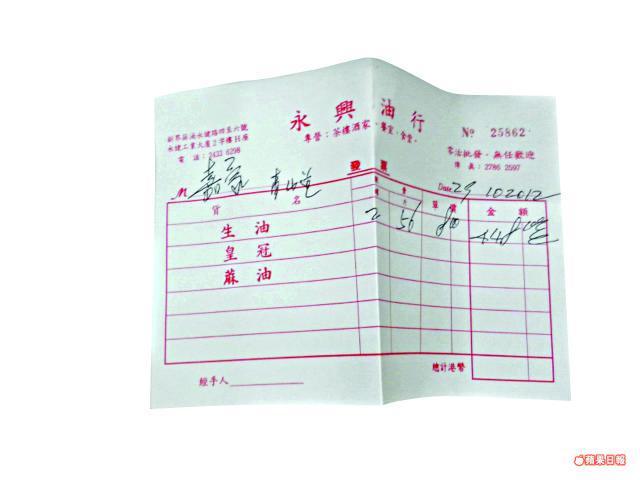 永興油行
專營：茶樓酒家、餐室、食堂。
新界葵涌永健路四至六號
永健工業大廈2字樓H座
電話：2433 6298
No 25862
零沽批發・無任歡迎
傳真：2786 2597
發票
M 嘉豪
Date 29 10 2012
貨名 單價 金額
生油 2 56 800 448
皇冠
蔴油
總計港幣
經手人
蘋果日報